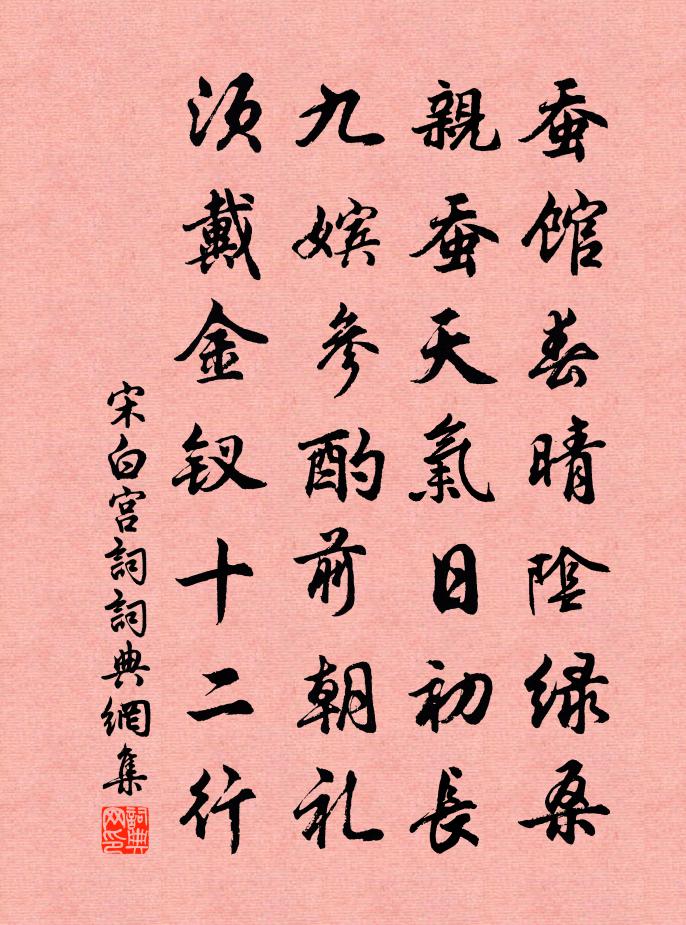 蚕馆春晴阴绿桑
親蚕天氣日初長
九嫔參酌前朝礼
须戴金钗十二行
宋白宫詞詞典網集
詞典网印